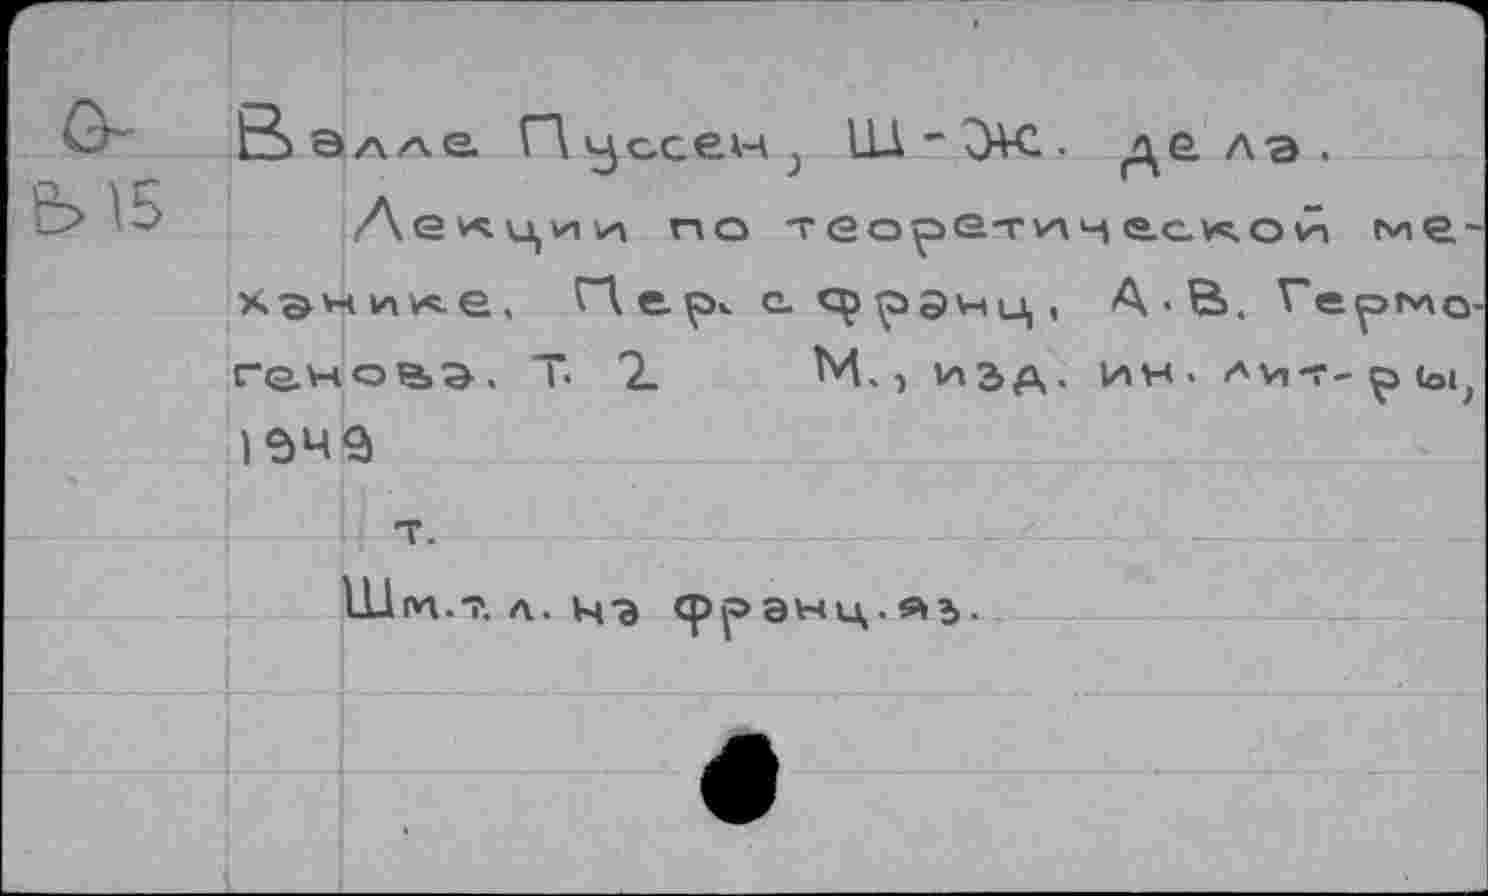 В Валле Пуссен, Ш-Ж. де ла.
В15 Лекции по теоретической ме-
ханике. Пер. с франц. А.В. Гермо-
генова. Т. 2 М., изд. ин. лит-ры,
1949
т.
Шт.т.л. на франц.яз.